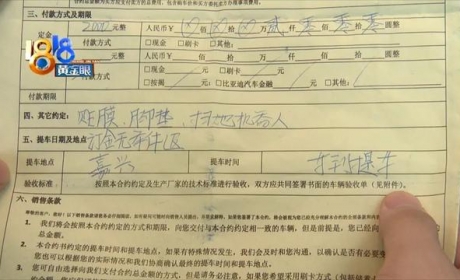 三、付款方式及期限
定金 2000元整 人民币￥ 佰 拾 万 贰仟 零佰 零拾 圆整
付款方式 □现金 □刷卡 □其他:
人民币￥ 佰 拾 万 仟 佰 拾 圆整
付款方式 □现金 □刷卡 □比亚迪汽车金融 □其他
付款期限
四、其它约定: 贴膜、脚垫、扫地机器人
五、提车日期及地点 订金无条件退
提车地点 嘉兴 提车时间 车到提车
验收标准: 按照本合约约定及生产厂家的技术标准进行验收,双方应共同签署书面的车辆验收单(见附件)。
六、销售条款
1. 我们会按照本合约约定的方式和期限,向您交付与本合约约定相符的车辆,但是前提是,您已经向
2. 本合约的提车时间和提车地点,如果有特殊情况发生,我们会及时和您沟通,以确认是否有必要变
的实际情况和我们协商确认最终的提车时间和提车地点。
3. 您可自由选择向我们支付合约总金额的方式,但是请务必注意,如果您希望采用刷卡方式(包括
1818
黄金眼